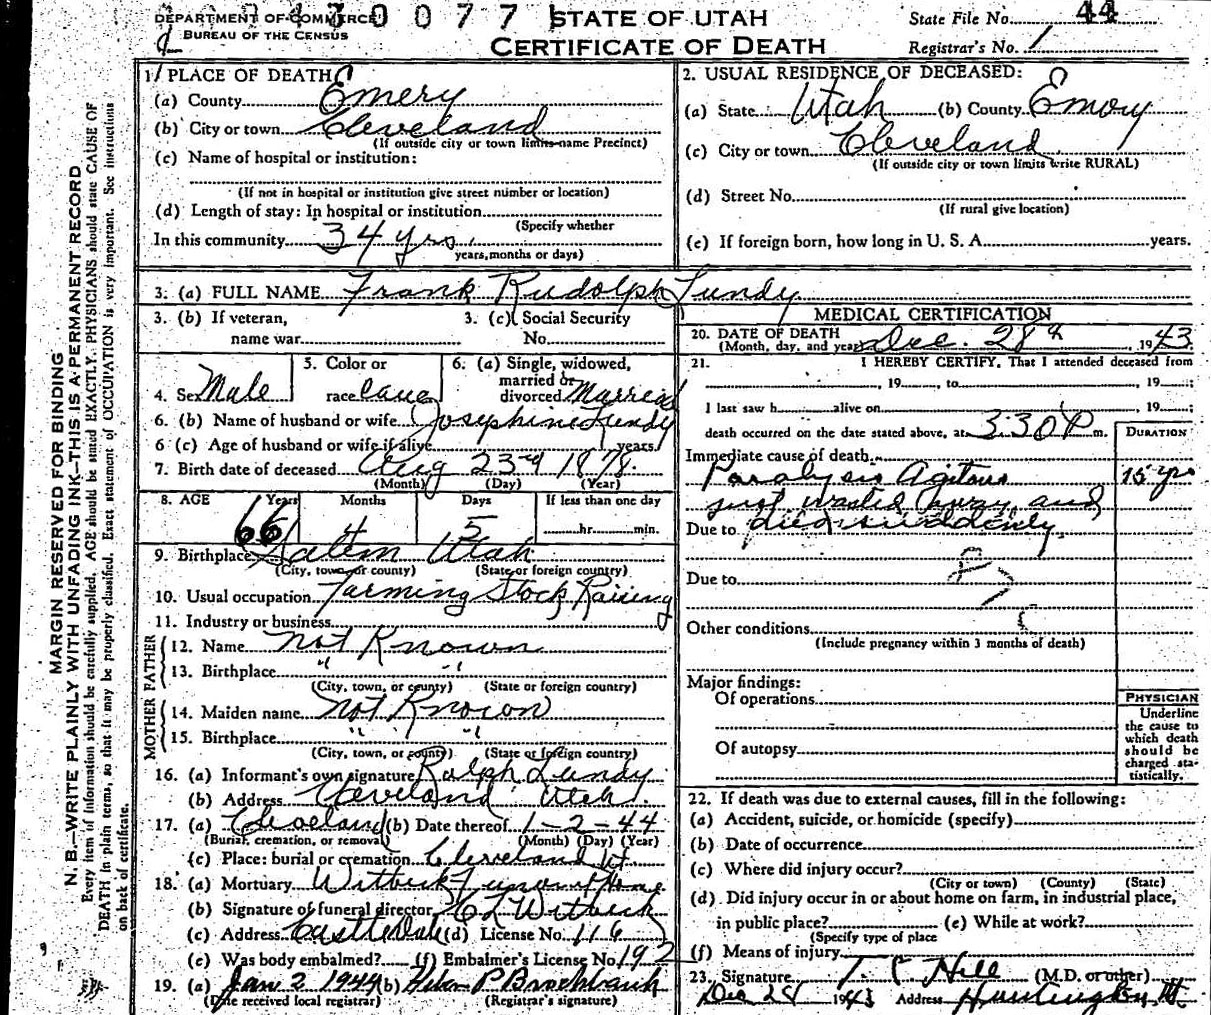 DEPARTMENT OF COMMERCE
BUREAU OF THE CENSUS
0 0 7 7
STATE OF UTAH
CERTIFICATE OF DEATH
State File No. 44
Registrar's No. 1
MARGIN RESERVED FOR BINDING
N. B.—WRITE PLAINLY WITH UNFADING INK—THIS IS A PERMANENT RECORD
Every item of information should be carefully supplied. AGE should be stated EXACTLY. PHYSICIANS should state CAUSE OF
DEATH in plain terms, so that it may be properly classified. Exact statement of OCCUPATION is very important. See instructions
on back of certificate.
1. PLACE OF DEATH
(a) County Emery
(b) City or town Cleveland
(If outside city or town limits name Precinct)
(c) Name of hospital or institution:
(If not in hospital or institution give street number or location)
(d) Length of stay: In hospital or institution
(Specify whether
In this community 34 yrs.
years, months or days)
2. USUAL RESIDENCE OF DECEASED:
(a) State Utah (b) County Emory
(c) City or town Cleveland
(If outside city or town limits write RURAL)
(d) Street No.
(If rural give location)
(e) If foreign born, how long in U. S. A. years.
3. (a) FULL NAME Frank Rudolph Lundy
3. (b) If veteran,
name war
3. (c) Social Security
No.
4. Sex Male
5. Color or
race Cauc
6. (a) Single, widowed,
married or
divorced Married
6. (b) Name of husband or wife Josephine Lundy
6 (c) Age of husband or wife if alive years.
7. Birth date of deceased Aug 23rd 1878.
(Month) (Day) (Year)
8. AGE Years Months Days If less than one day
66 4 5 hr. min.
9. Birthplace Salem Utah
(City, town, or county) (State or foreign country)
10. Usual occupation Farming Stock Raising
11. Industry or business
FATHER
12. Name Not Known
13. Birthplace " "
(City, town, or county) (State or foreign country)
MOTHER
14. Maiden name Not Known
15. Birthplace " "
(City, town, or county) (State or foreign country)
16. (a) Informant's own signature Ralph Lundy
(b) Address Cleveland Utah.
17. (a) Cleveland (b) Date thereof 1-2-44
(Burial, cremation, or removal) (Month) (Day) (Year)
(c) Place: burial or cremation Cleveland Ut
18. (a) Mortuary Witbeck Funeral Home
(b) Signature of funeral director C L Witbeck
(c) Address Castle Dale (d) License No. 116
(e) Was body embalmed? (f) Embalmer's License No. 192
19. (a) Jan 2 1944 (b) P Brockbank
(Date received local registrar) (Registrar's signature)
MEDICAL CERTIFICATION
20. DATE OF DEATH
(Month, day, and year) Dec. 28th, 1943
21. I HEREBY CERTIFY, That I attended deceased from
, 19 , to , 19 ;
I last saw h alive on , 19 ;
death occurred on the date stated above, at 3:30 P m.
DURATION
Immediate cause of death
Paralysis Agitans 15 yrs
just wasted away and
Due to died suddenly.
Due to
Other conditions
(Include pregnancy within 3 months of death)
Major findings:
Of operations
Of autopsy
PHYSICIAN
Underline
the cause to
which death
should be
charged sta-
tistically.
22. If death was due to external causes, fill in the following:
(a) Accident, suicide, or homicide (specify)
(b) Date of occurrence
(c) Where did injury occur?
(City or town) (County) (State)
(d) Did injury occur in or about home on farm, in industrial place,
in public place? (e) While at work?
(Specify type of place
(f) Means of injury
23. Signature T. C Hill (M.D. or other)
Dec 28 1943 Address Huntington Ut.